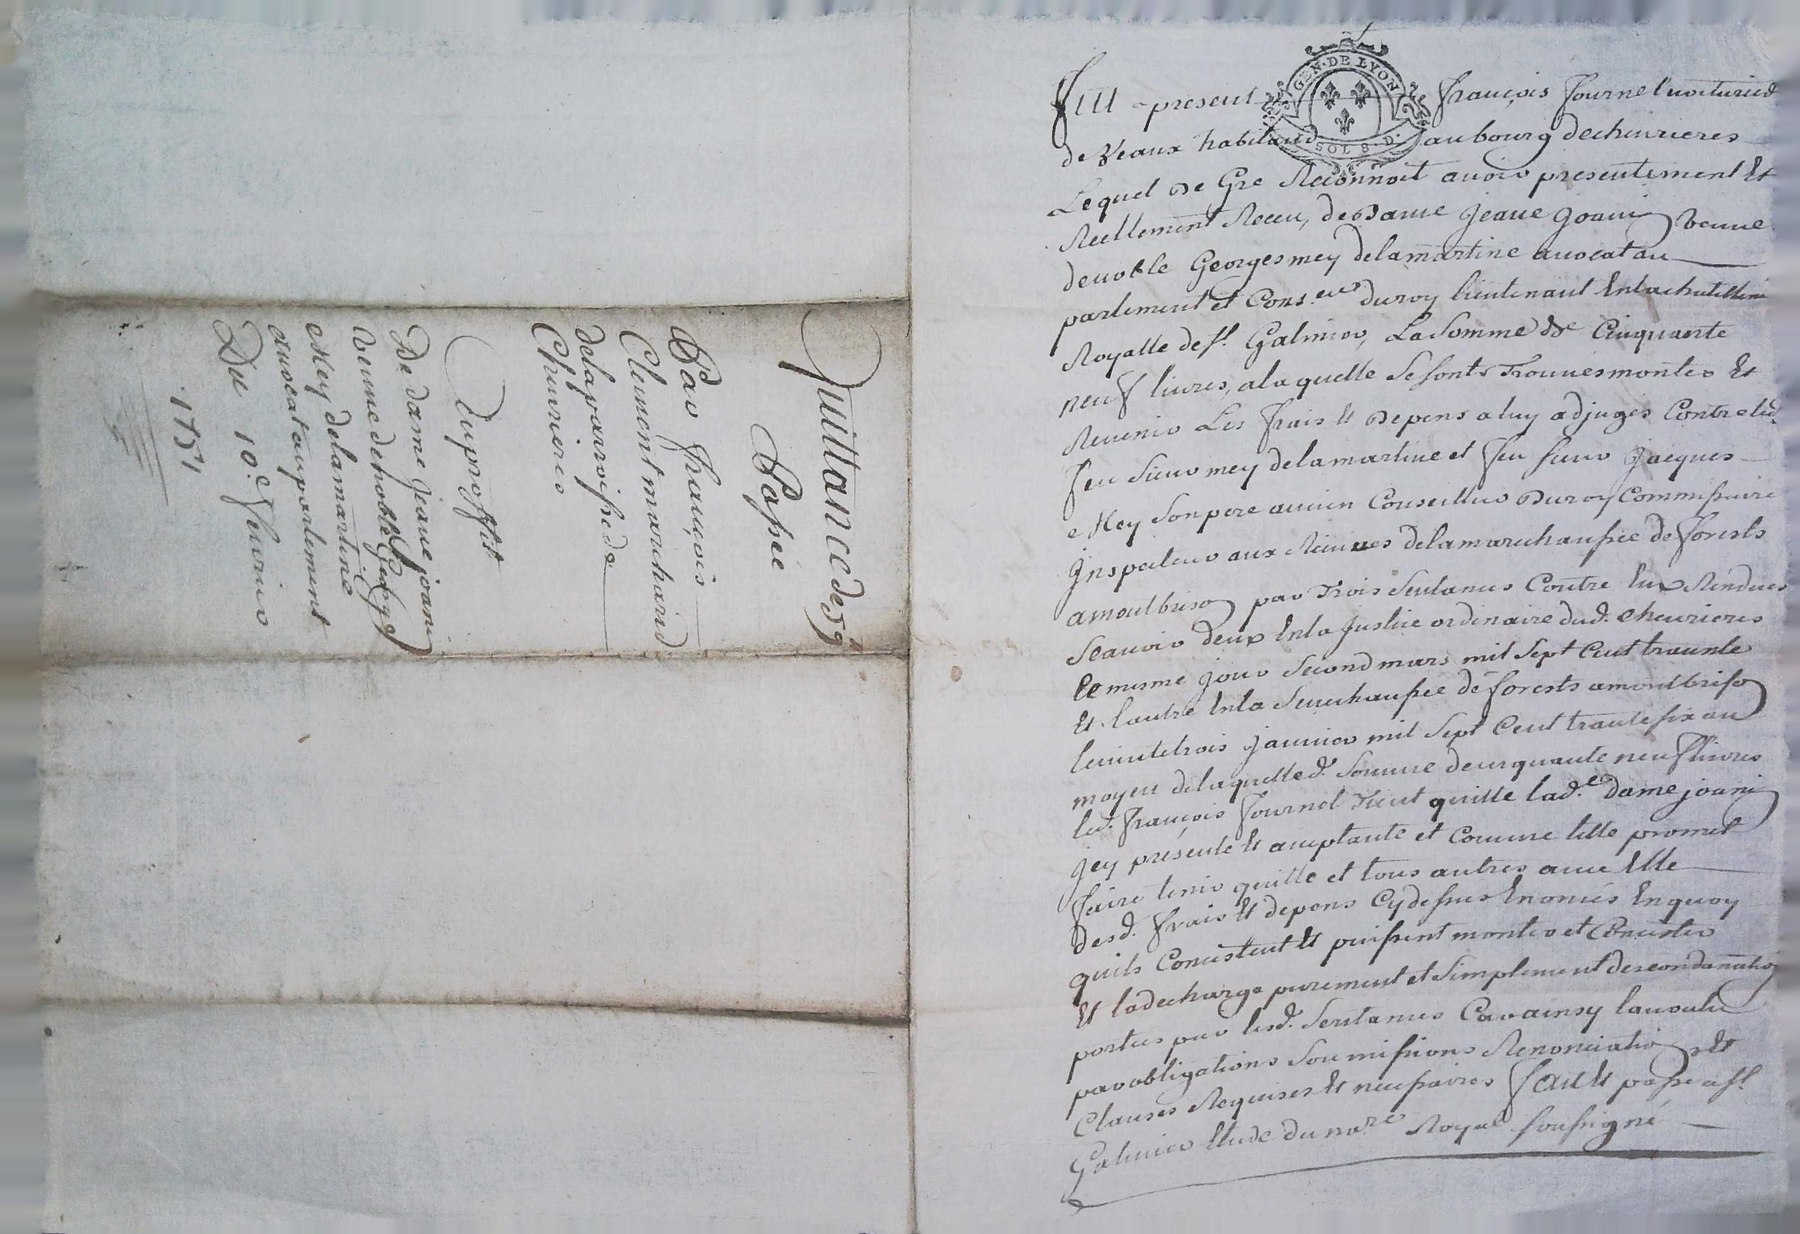 Quittance de 59 ll
Passée
Par François
Clement marchand
de la parroisse de
Cheurieres
Du proffit
De dame jeane joanin
veuue de noble George
Mey de la martine
auocat au parlement
Du 10e feurier
1751
GEN. DE LYON
SOLS. D.
Fut present François Fournel voiturier
de Veaux habitand au bourg de cheurieres
Lequel De Gre Reconnoit auoir presentement Et
Reellement Receu, de Dame Jeane Joanin Veuue
de noble Georges mey delamartine auocat au
parlement et Cons.er du roy lieutenant En la chatellenie
Royalle de st. Galmier, La Somme de Cinquante
neuf liures, a la quelle Se sont Trouués monter Et
Reuenir Les frais Et Depens a luy adjuges Contre led.
feu Sieur mey delamartine et feu sieur Jacques
Mey Son pere ancien Conseiller Du roy Commissaire
Inspecteur aux Reuues de la marechaussée de forests
a montbrison par Trois Sentances Contre Eux Rendues
Scauoir deux En la Justice ordinaire dud. cheurieres
Le mesme jour Second mars mil Sept Cent trante
Et L'autre En la Senechaussée de forests a montbrison
le vintetrois januier mil Sept Cent trante six au
moyen de laquelle d. Somme de cinquante neuf liures
led. François Fournel Tient quitte lad.e dame joanin
Jcy presente Et acceptante et Comme telle promet
faire tenir quitte et tous autres auec Elle
desd. frais Et depens Cy dessus Enoncés En quoy
quils Concistent Et puissent monter et Concister
Et la decharge purement et Simplement des condanations
portées par lesd. Sentances Car ainsy la voulu
par obligations Soumissions Renonciation Et
Clauses Requises Et necessaires fait Et passé a st.
Galmier Etude du no.re Royal soussigné